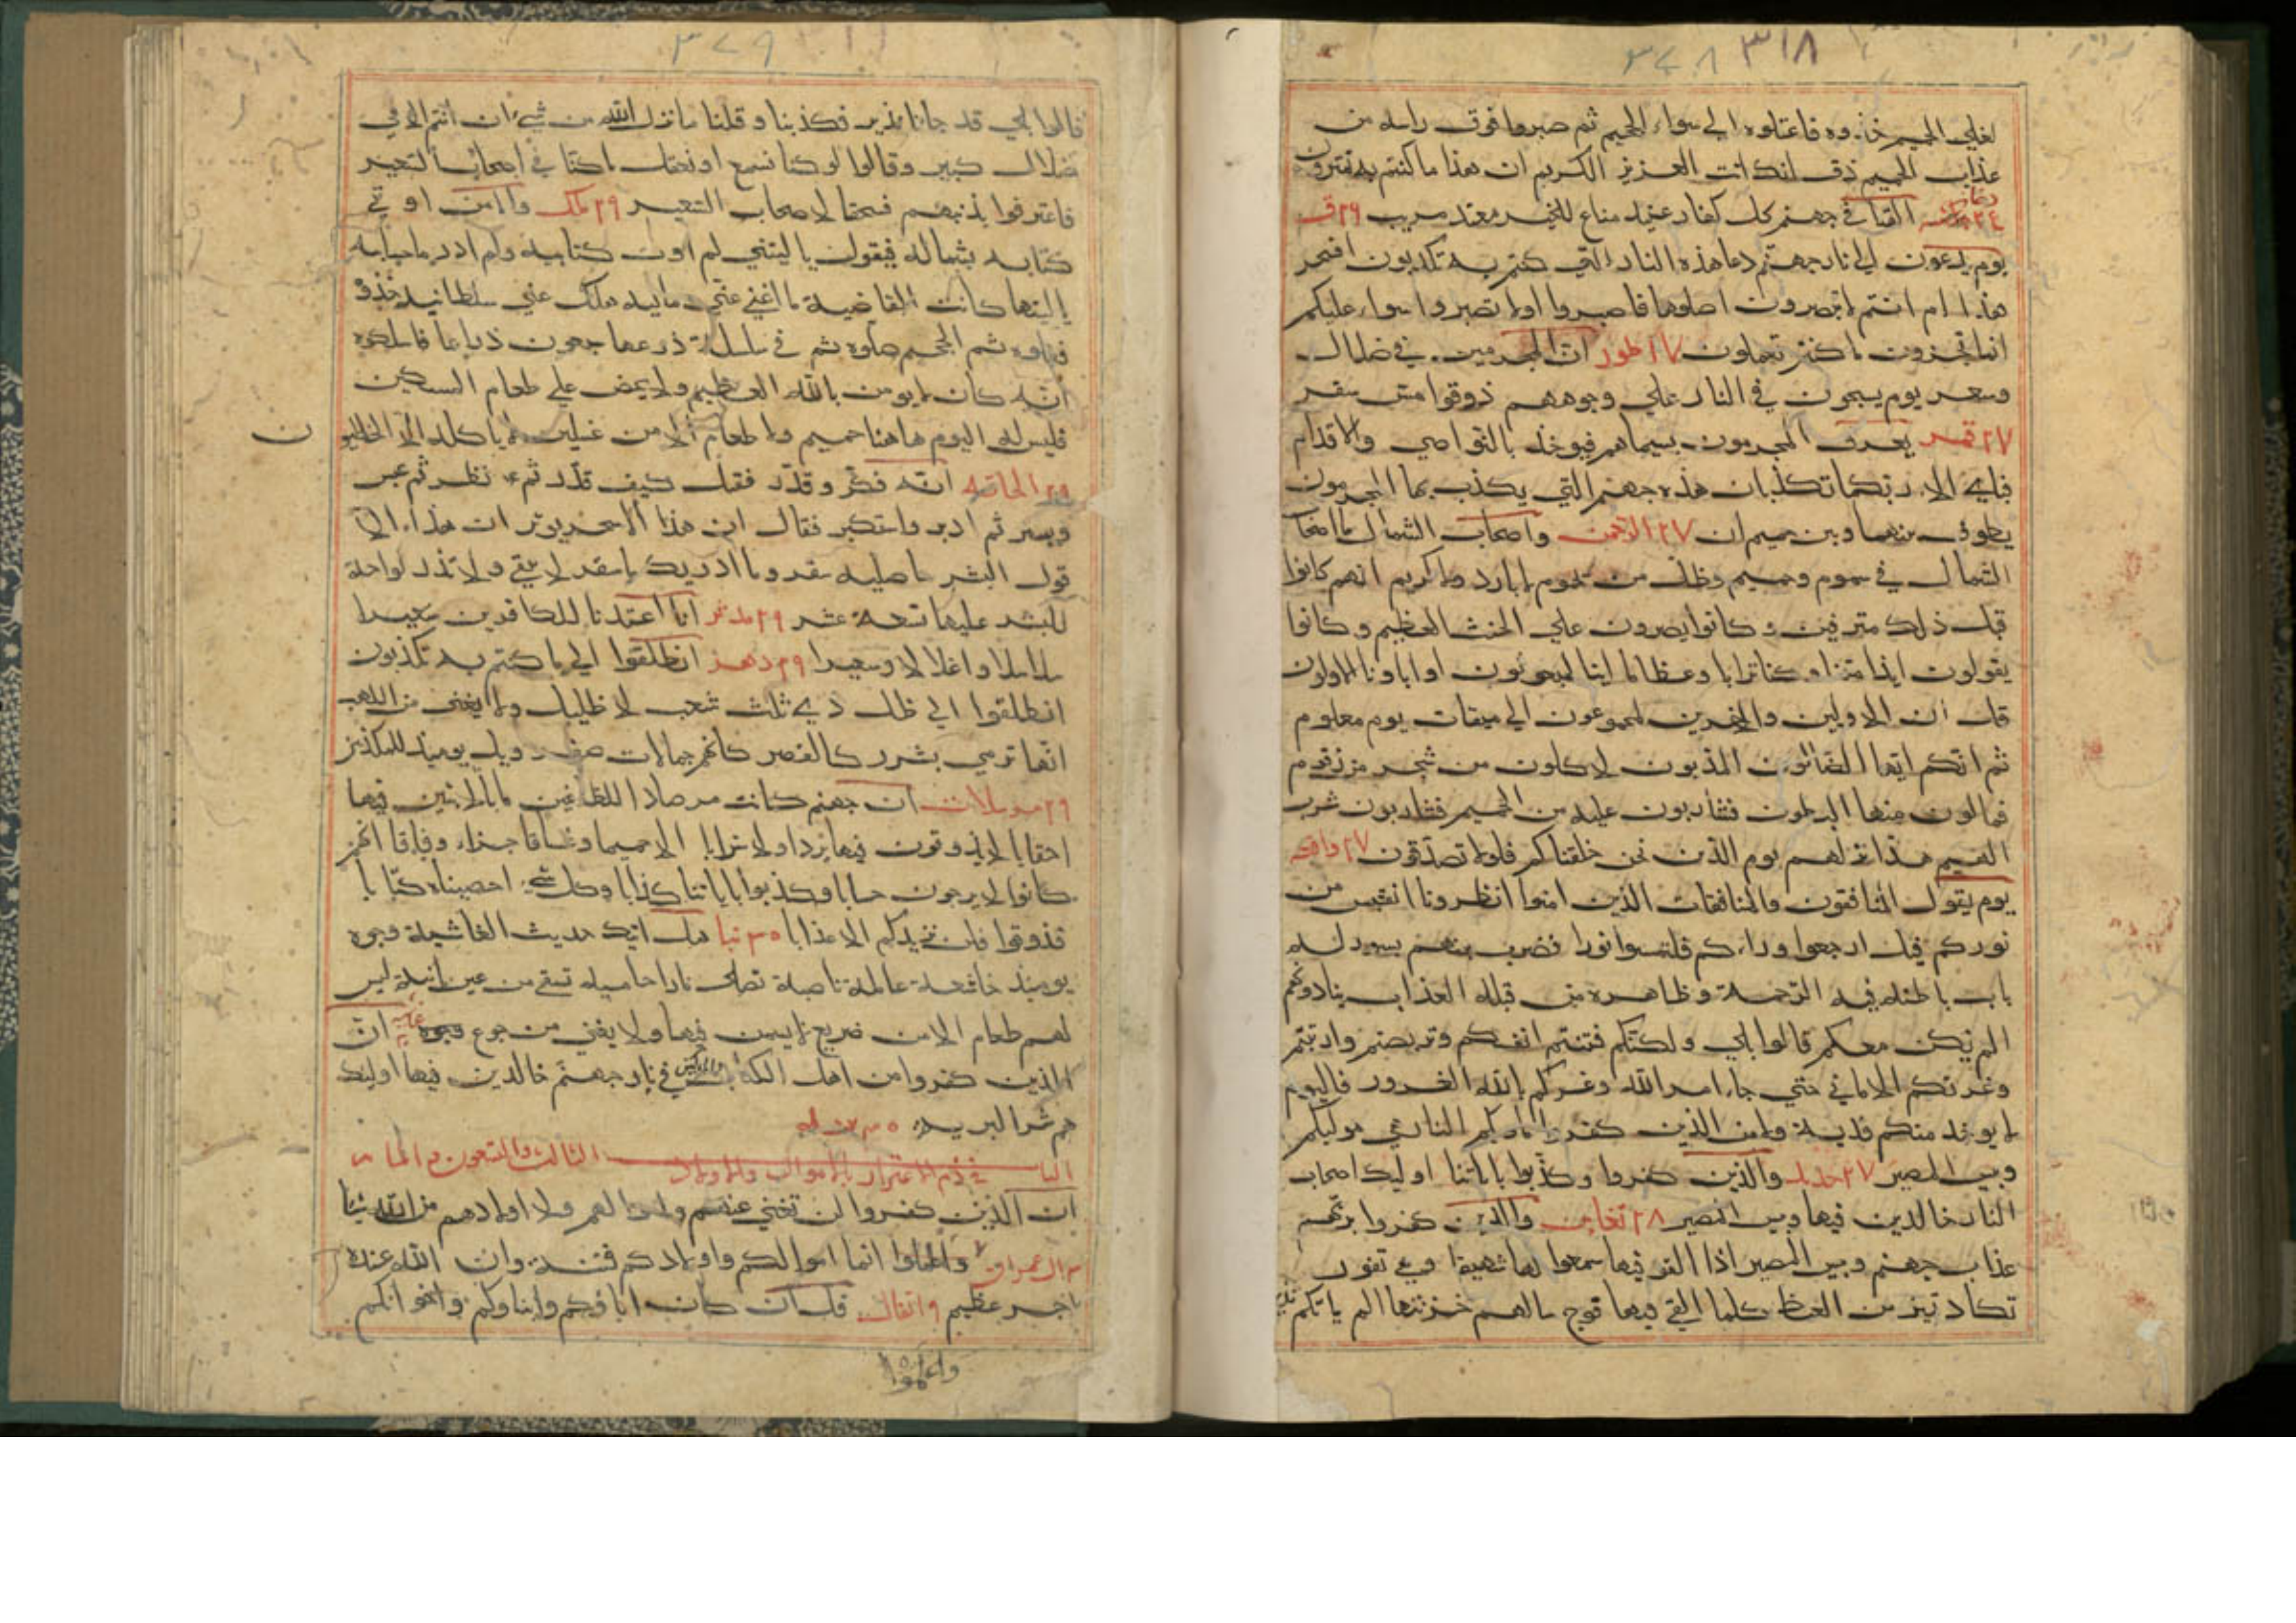 ٣٧٨ ٣١٨
لغلي الحميم خذوه فاعتلوه الي سواء الجحيم ثم صبروا فوق راسه من
عذاب الحميم ذق انك انت العزيز الكريم ان هذا ما كنتم به تمترون
القيا في جهنم كل كفار عنيد مناع للخير معتد مريب ٢٦ ق
يوم يدعون الي نار جهنم دعا هذه النار التي كنتم به تكذبون افسحر
هذا ام انتم لا تبصرون اصلوها فاصبروا اولا تصبروا سواء عليكم
انما تجزون ما كنتم تعملون ٢٧ طور ان المجرمين في ضلال
وسعر يوم يسحبون في النار علي وجوههم ذوقوا مس سقر
٢٧ قمر يعرف المجرمون بسيماهم فيوخذ بالنواصي والاقدام
فباي الاء ربكما تكذبان هذه جهنم التي يكذب بها المجرمون
يطوفون بينها وبين حميم ان ٢٧ الرحمن واصحاب الشمال ما اصحاب
الشمال في سموم وحميم وظل من يحموم لا بارد ولا كريم انهم كانوا
قبل ذلك مترفين وكانوا يصرون علي الحنث العظيم وكانوا
يقولون ايذا متنا وكنا ترابا وعظاما اينا لمبعوثون او اباونا الاولون
قل ان الاولين والاخرين لمجموعون الي ميقات يوم معلوم
ثم انكم ايها الضالون المكذبون لاكلون من شجر من زقوم
فمالون منها البطون فشاربون عليه من الحميم فشاربون شرب
الهيم هذا نزلهم يوم الدين نحن خلقناكم فلولا تصدقون ٢٧ واقعه
يوم يقول المنافقون والمنافقات للذين امنوا انظرونا نقتبس من
نوركم قيل ارجعوا وراءكم فالتمسوا نورا فضرب بينهم بسور له
باب باطنه فيه الرحمة وظاهره من قبله العذاب ينادونهم
الم نكن معكم قالوا بلي ولكنكم فتنتم انفسكم وتربصتم وارتبتم
وغرتكم الاماني حتي جاء امر الله وغركم بالله الغرور فاليوم
لا يوخذ منكم فدية ولا من الذين كفروا ماويكم النار هي موليكم
وبيس المصير ٢٧ حديد والذين كفروا وكذبوا باياتنا اوليك اصحاب
النار خالدين فيها وبيس المصير ٢٨ تغابن والذين كفروا بربهم
عذاب جهنم وبيس المصير اذا القوا فيها سمعوا لها شهيقا وهي تفور
تكاد تميز من الغيظ كلما القي فيها فوج سالهم خزنتها الم ياتكم نذير
٣٧٩
قالوا بلي قد جانا نذير فكذبنا وقلنا ما نزل الله من شيء ان انتم الا في
ضلال كبير وقالوا لو كنا نسمع او نعقل ما كنا في اصحاب السعير
فاعترفوا بذنبهم فسحقا لاصحاب السعير ٢٩ ملك واما من اوتي
كتابه بشماله فيقول يا ليتني لم اوت كتابيه ولم ادر ما حسابيه
يا ليتها كانت القاضية ما اغني عني ماليه هلك عني سلطانيه خذوه
فغلوه ثم الجحيم صلوه ثم في سلسلة ذرعها سبعون ذراعا فاسلكوه
انه كان لا يومن بالله العظيم ولا يحض علي طعام المسكين
فليس له اليوم هاهنا حميم ولا طعام الا من غسلين لا ياكله الا الخاطيون
٢٩ الحاقه انه فكر وقدر فقتل كيف قدر ثم نظر ثم عبس
وبسر ثم ادبر واستكبر فقال ان هذا الا سحر يوثر ان هذا الا
قول البشر ساصليه سقر وما ادريك ما سقر لا تبقي ولا تذر لواحة
للبشر عليها تسعة عشر ٢٩ مدثر انا اعتدنا للكافرين سعيرا
سلاسلا واغلالا وسعيرا ٢٩ دهر انطلقوا الي ما كنتم به تكذبون
انطلقوا الي ظل ذي ثلث شعب لا ظليل ولا يغني من اللهب
انها ترمي بشرر كالقصر كانهم جمالات صفر ويل يوميذ للمكذبين
٢٩ مرسلات ان جهنم كانت مرصادا للطاغين مابا لابثين فيها
احقابا لا يذوقون فيها بردا ولا شرابا الا حميما وغساقا جزاء وفاقا انهم
كانوا لا يرجون حسابا وكذبوا باياتنا كذابا وكل شيء احصيناه كتابا
فذوقوا فلن نزيدكم الا عذابا ٣٠ نبا هل اتيك حديث الغاشية وجوه
يوميذ خاشعة عاملة ناصبة تصلي نارا حاميه تسقي من عين انية ليس
لهم طعام الا من ضريع لا يسمن فيها ولا يغني من جوع ان
الذين كفروا من اهل الكتاب والمشركين في نار جهنم خالدين فيها اوليك
هم شر البرية
الباب الثالث والتسعون و الماية في ذم الاغترار بالاموال والاولاد
ان الذين كفروا لن تغني عنهم اموالهم ولا اولادهم من الله شيا
٣ ال عمران واعلموا انما اموالكم واولادكم فتنة وان الله عنده
اجر عظيم ٩ انفال قل ان كان اباوكم وابناوكم واخوانكم
واعلموا